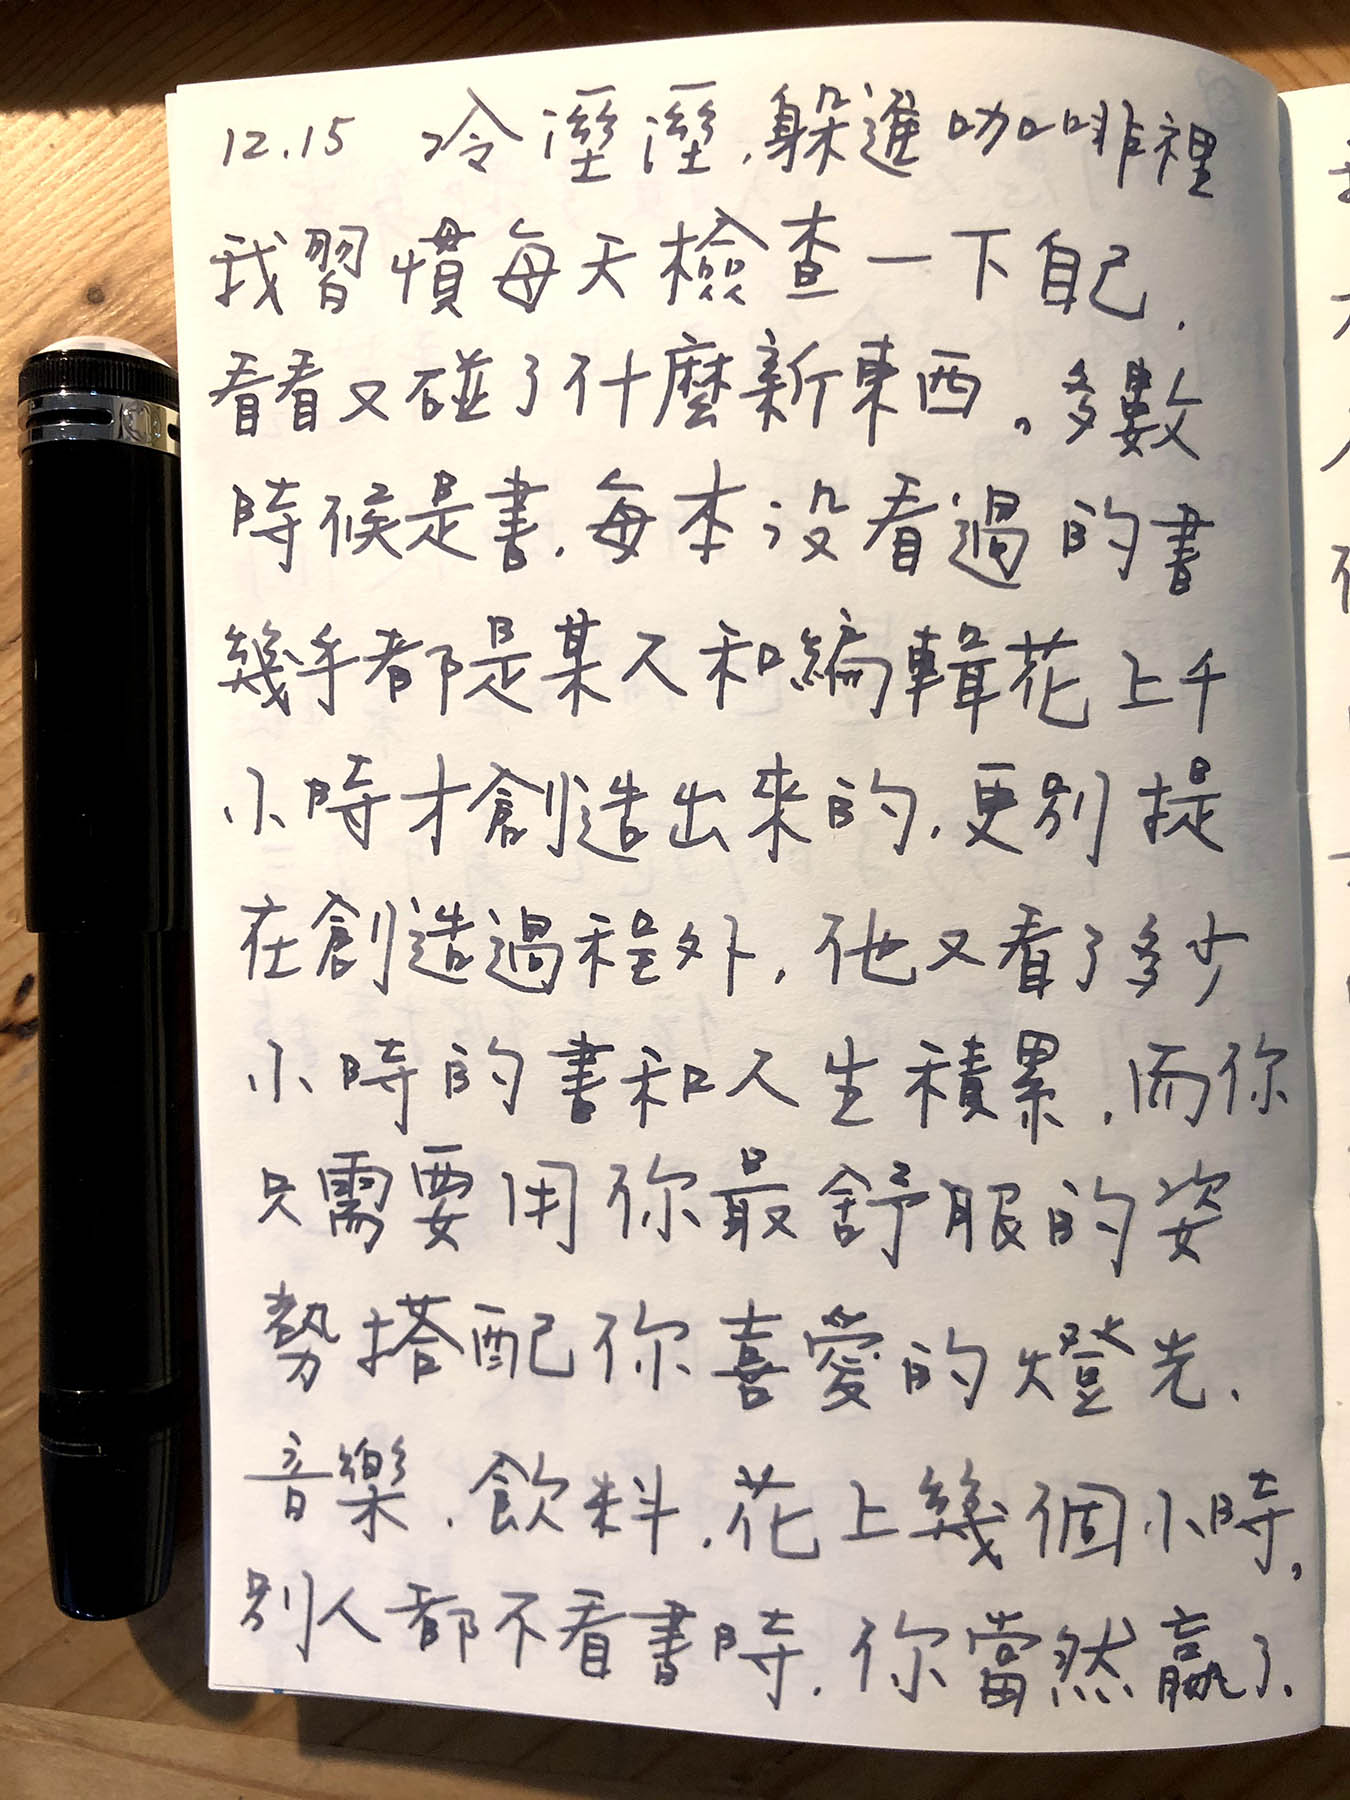 12.15 冷溼溼，躲進咖啡裡
我習慣每天檢查一下自己，
看看又碰了什麼新東西。多數
時候是書，每本沒看過的書
幾乎都是某人和編輯花上千
小時才創造出來的，更別提
在創造過程外，他又看了多少
小時的書和人生積累，而你
只需要用你最舒服的姿
勢搭配你喜愛的燈光、
音樂、飲料，花上幾個小時，
別人都不看書時，你當然贏了、